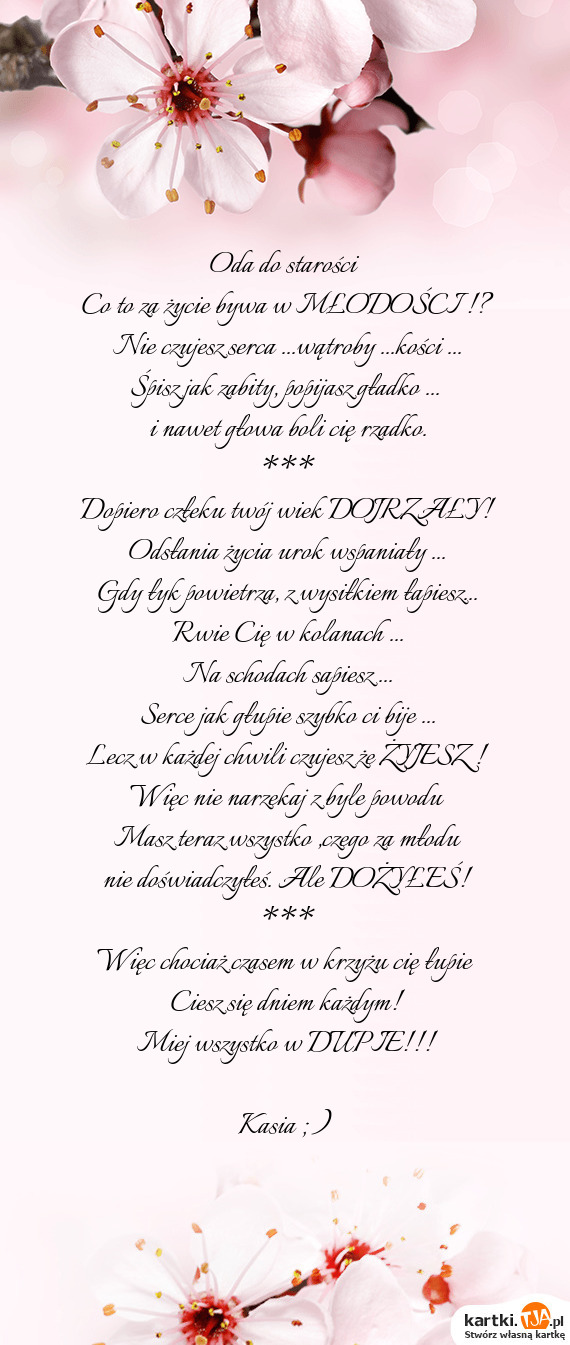 Oda do starości
Co to za życie bywa w MŁODOŚCI !?
Nie czujesz serca ...wątroby ...kości ...
Śpisz jak zabity, popijasz gładko ...
i nawet głowa boli cię rzadko.
***
Dopiero człeku twój wiek DOJRZAŁY!
Odsłania życia urok wspaniały ...
Gdy łyk powietrza, z wysiłkiem łapiesz...
Rwie Cię w kolanach ...
Na schodach sapiesz ...
Serce jak głupie szybko ci bije ...
Lecz w każdej chwili czujesz że ŻYJESZ !
Więc nie narzekaj z byle powodu
Masz teraz wszystko ,czego za młodu
nie doświadczyłeś. Ale DOŻYŁEŚ!
***
Więc chociaż czasem w krzyżu cię łupie
Ciesz się dniem każdym!
Miej wszystko w DUPIE!!!
Kasia ; )
kartki.TJA.pl
Stwórz własną kartkę